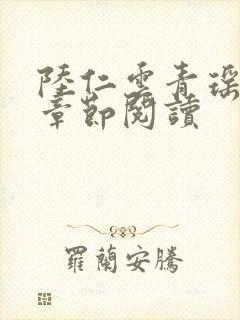 陸仁雲青瑶
章節閱讀
羅蘭安騰